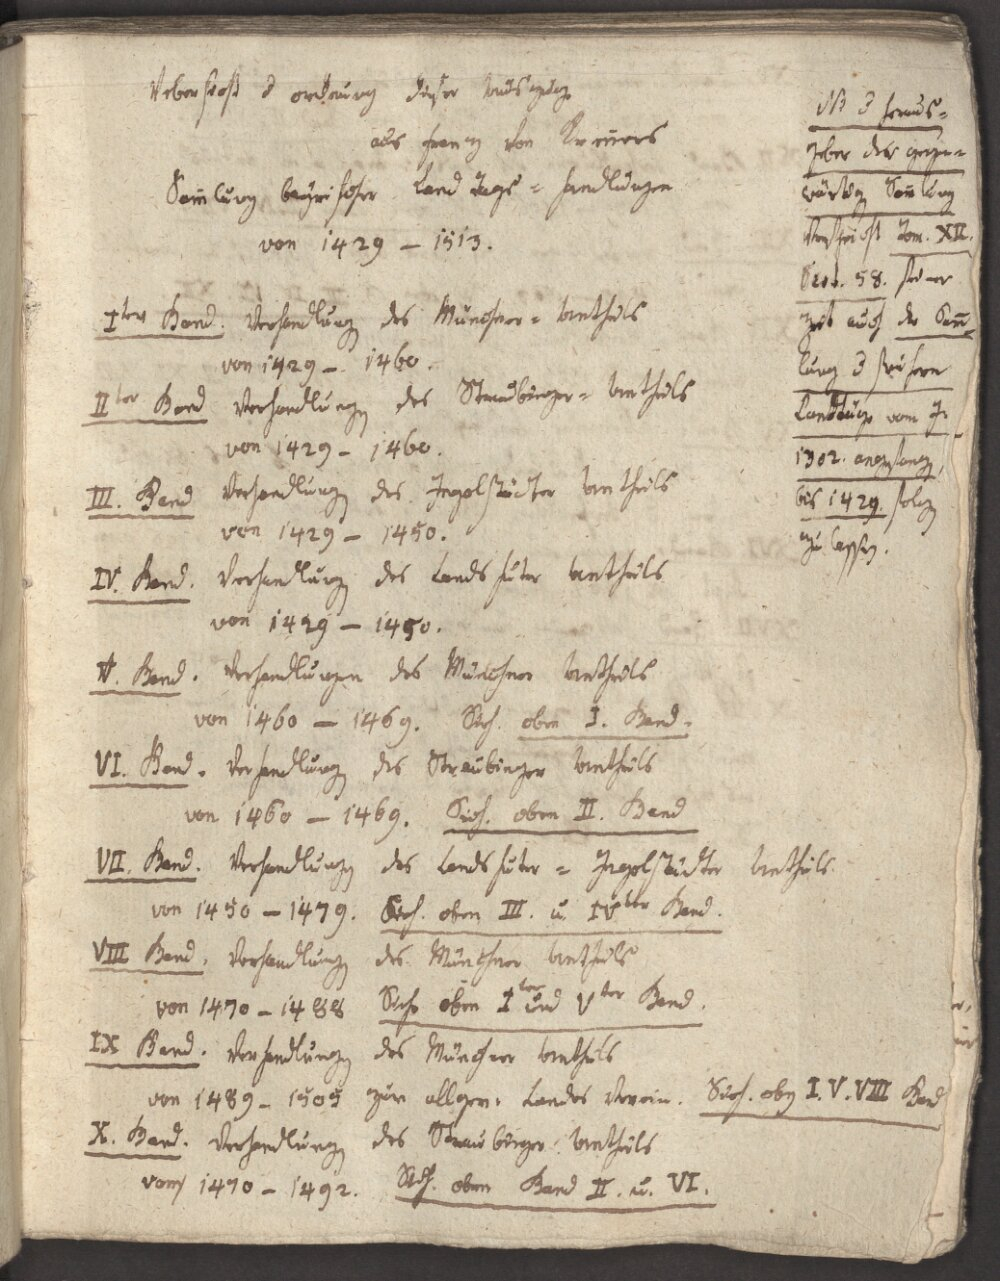 Uebersicht d ordnung dieser Auszüge
aus Franz von Krenners
Sam̅lung bayrischer Land Tags = Handlungen
von 1429 – 1513.
Iter Band. Verhandlung des Münchner = Antheils
von 1429 – 1460.
IIter Band Verhandlung des Straubinger = Antheils
von 1429 – 1460.
III. Band Verhandlung des Ingolstädter Antheils
von 1429 – 1450.
IV. Band. Verhandlung des Landshuter Antheils
von 1429 – 1450.
V. Band. Verhandlungen des Münchner Antheils
von 1460 – 1469. Sieh. oben I. Band.
VI. Band. Verhandlung des Straubinger Antheils
von 1460 – 1469. Sieh. oben II. Band
VII. Band. Verhandlung des Landshuter = Ingolstädter Antheils.
von 1450 – 1479. Sieh. oben III. u. IVter Band.
VIII Band. Verhandlung des Münchner Antheils
von 1470 – 1488 Sieh oben Iter und Vter Band.
IX Band. Verhandlung des Münchner Antheils
von 1489 – 1505 zur allgem. Landes Verein. Sieh. oben I. V. VIII Band
X. Band. Verhandlung des Straubinger Antheils
vom 1470 – 1492. Sieh. oben Band II. u. VI.
NB d Heraus=
geber der gegen=
wärtig Sam̅lung
verspricht Tom. XII.
58. seiner
Zeit auch die Sam̅=
lung d frühern
Landtäge vom J.
1302. angefangen,
bis 1429. folgen
zu lassen.